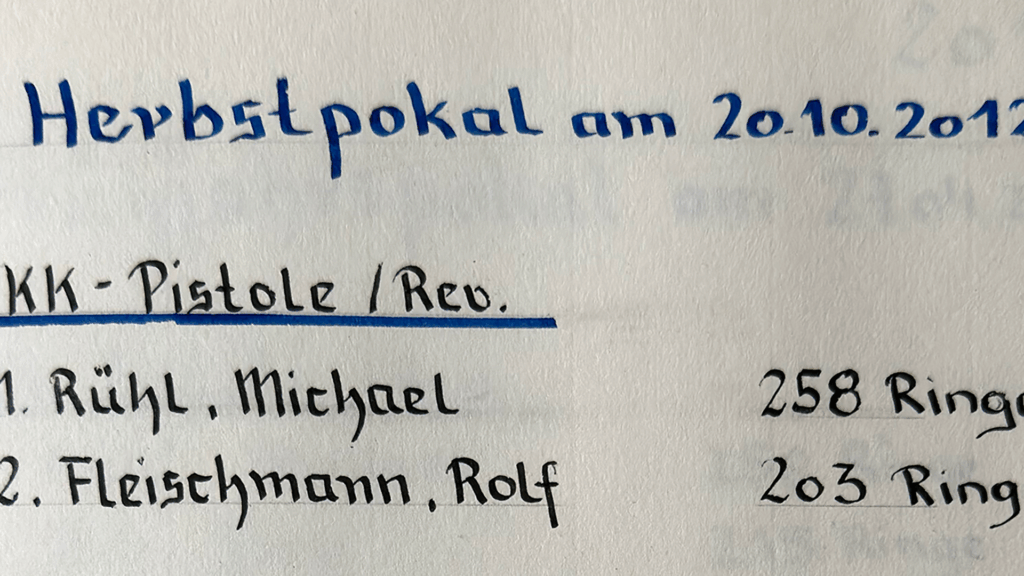 Herbstpokal am 20.10.2012
KK - Pistole / Rev.
1. Rühl, Michael 258 Ringe
2. Fleischmann, Rolf 203 Ring